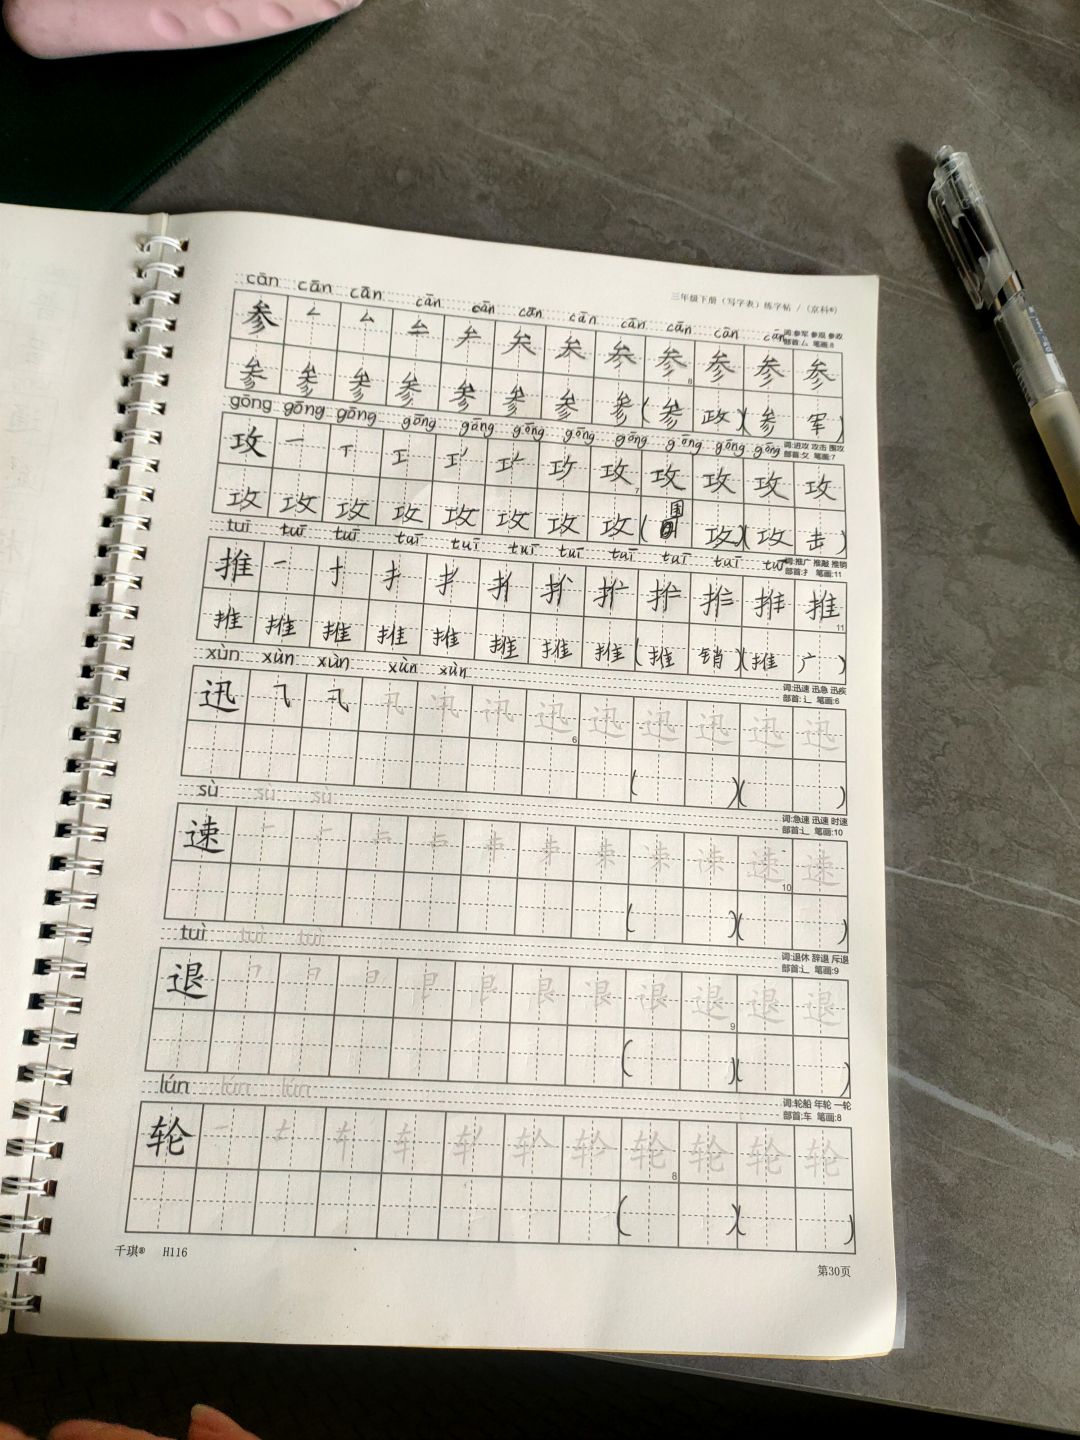 三年级下册（写字表）练字帖 /（京科®）
cān cān cān cān cān cān cān cān cān cān cān
词:参军 参观 参政
部首:厶 笔画:8
参 参 参 参 参 参
8
参 参 参 参 参 参 参 参 ( 参 政 )( 参 军 )
gōng gōng gōng gōng gōng gōng gōng gōng gōng gōng gōng
词:进攻 攻击 围攻
部首:攵 笔画:7
攻 一 丅 工 攻 攻 攻 攻 攻 攻
7
攻 攻 攻 攻 攻 攻 攻 攻 ( 围 攻 )( 攻 击 )
tuī tuī tuī tuī tuī tuī tuī tuī tuī tuī tuī
词:推广 推敲 推销
部首:扌 笔画:11
推 一 扌 推
11
推 推 推 推 推 推 推 推 ( 推 销 )( 推 广 )
xùn xùn xùn xùn xùn
词:迅速 迅急 迅疾
部首:辶 笔画:6
迅 乁 卂 卂 讯 讯 迅 迅 迅 迅 迅 迅
6
( )( )
sù sù sù
词:急速 迅速 时速
部首:辶 笔画:10
速 一 速 速
10
( )( )
tuì tuì tuì
词:退休 辞退 斥退
部首:辶 笔画:9
退 退 退 退
9
( )( )
lún lún lún
词:轮船 年轮 一轮
部首:车 笔画:8
轮 一 车 车 轮 轮 轮 轮
8
( )( )
千琪® H116
第30页